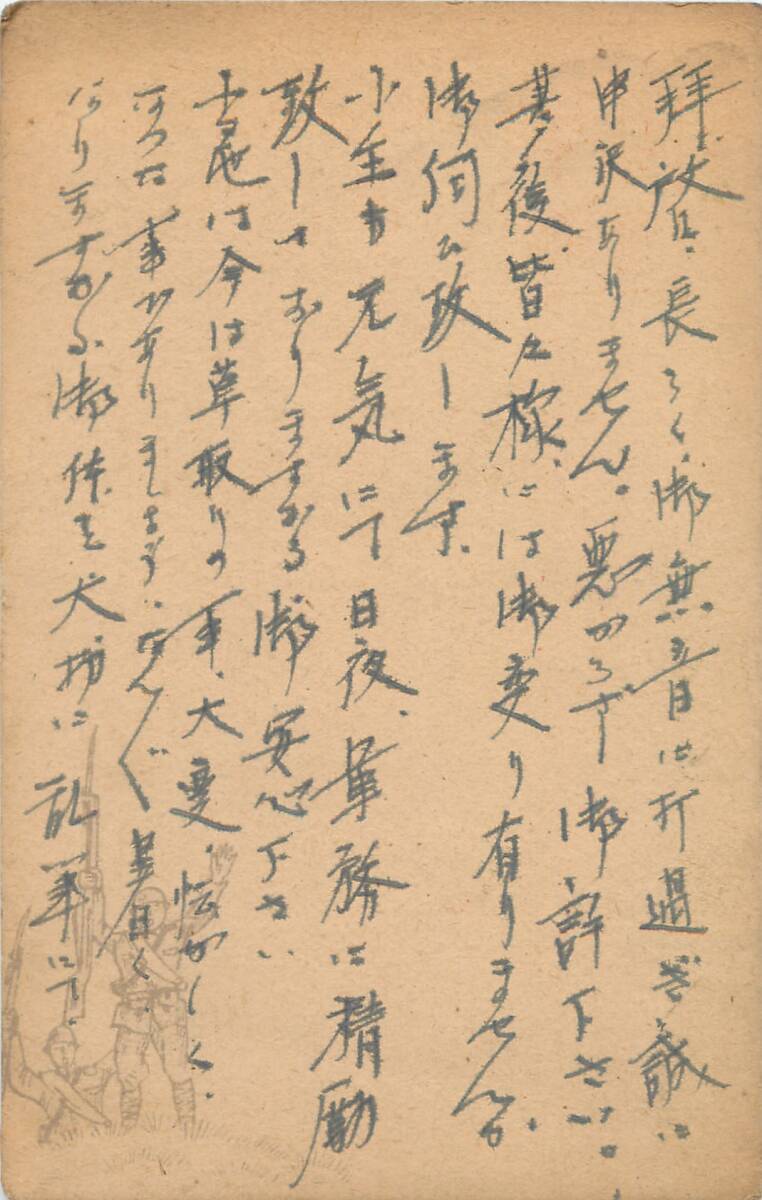 拝啓、長らく御無音に打過ぎ誠に
申訳ありません。悪からず御許下さい。
其後皆々様には御変り有りませんか
御伺ひ致します。
小生も元気にて日夜軍務に精励
致しておりますから御安心下さい
は今は草取りの事、大変、忙かしく、
事でありましよう、だんだん暑く
なりますから御体を大切に 乱筆にて